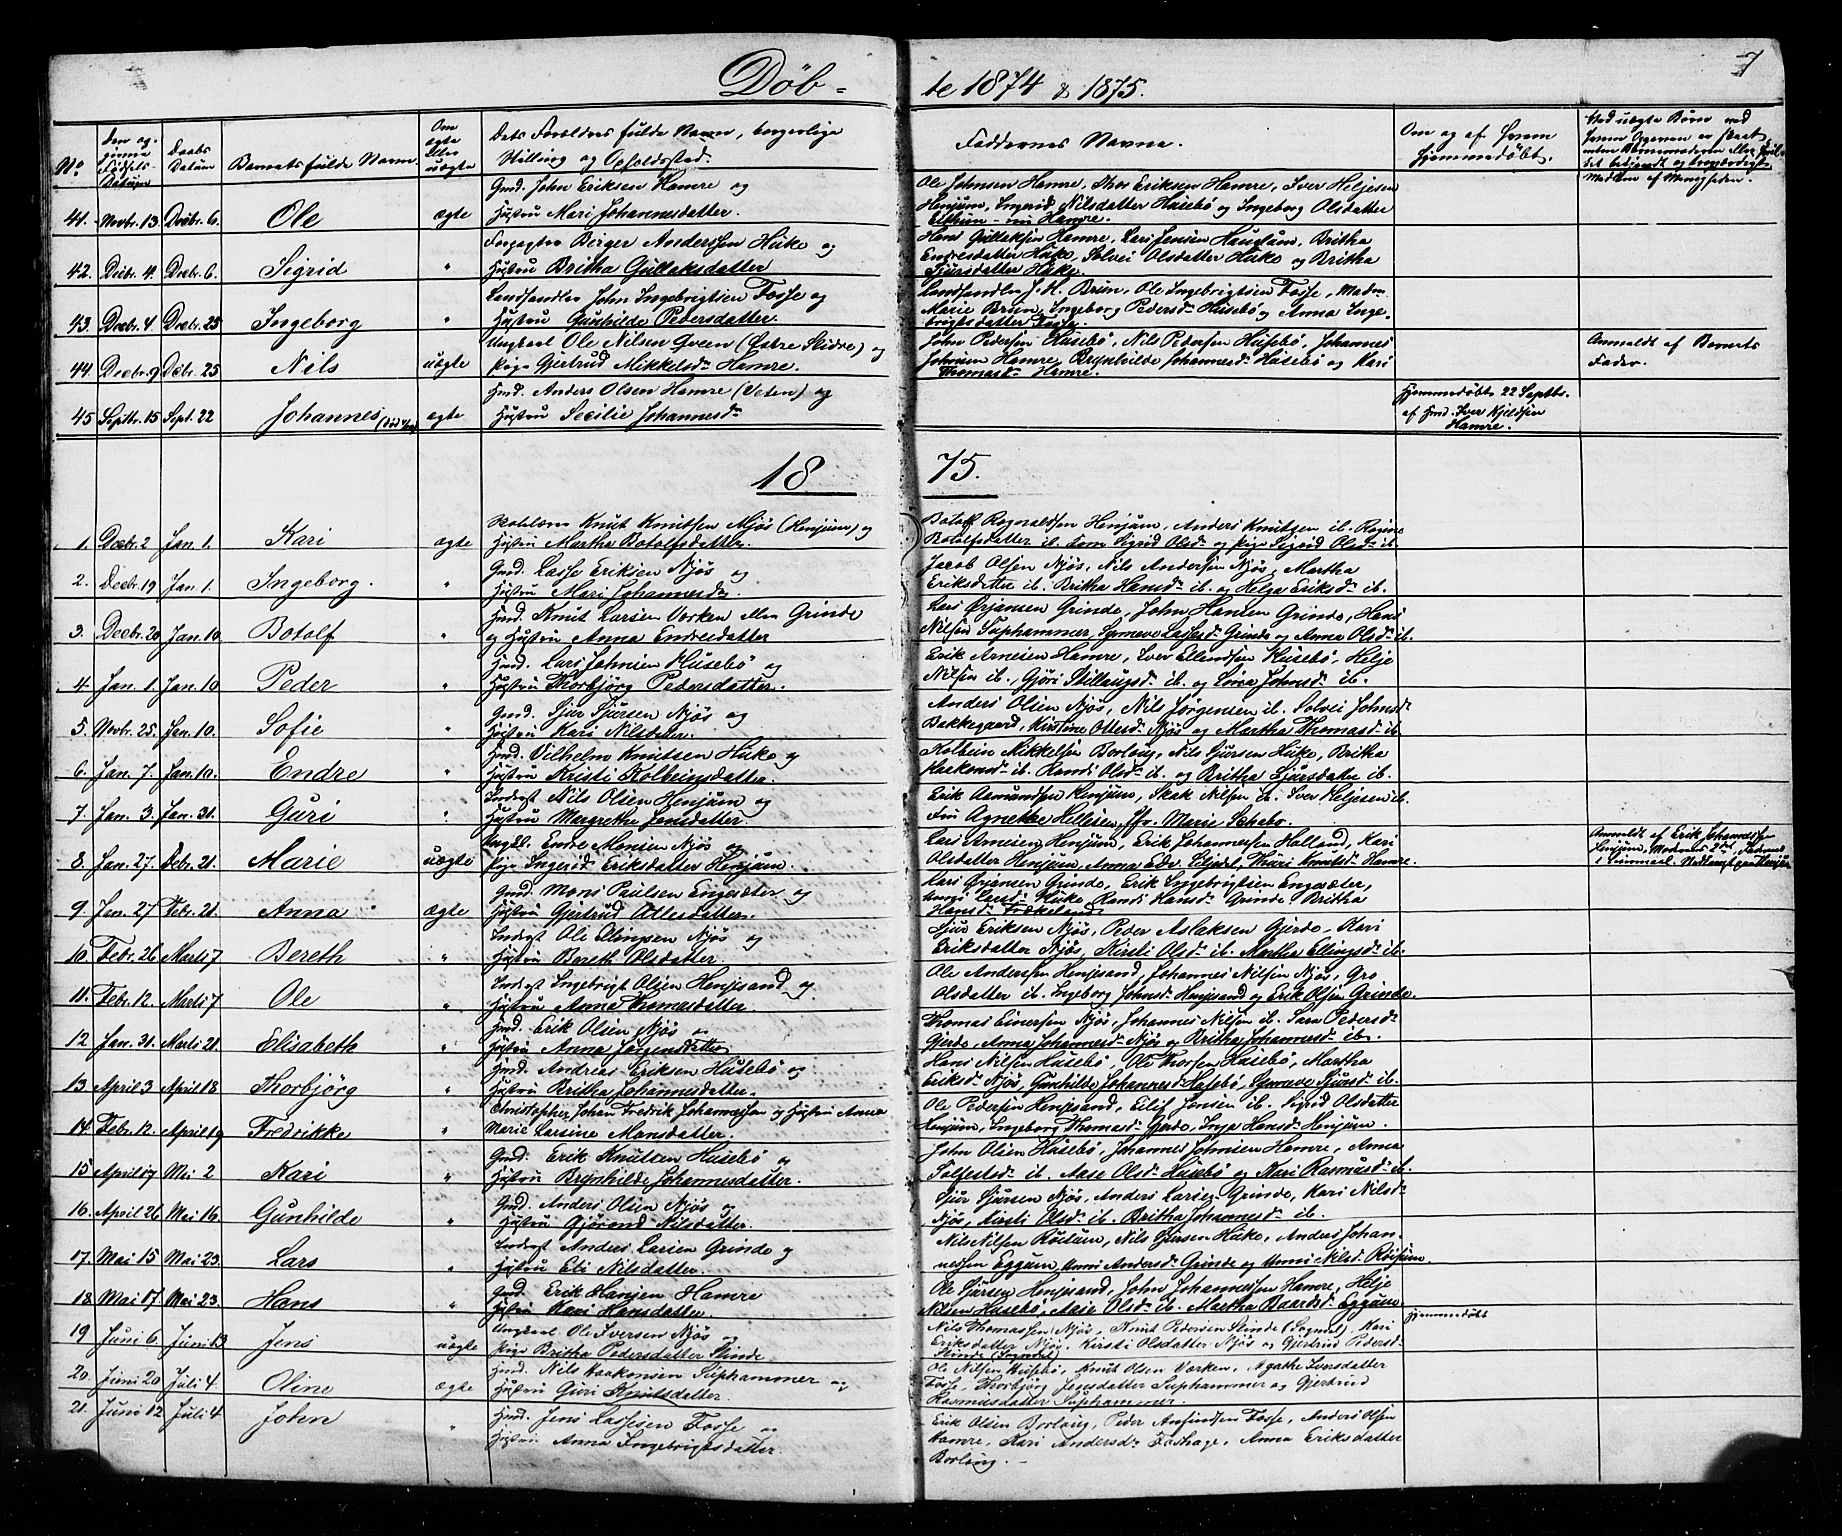 Døb-
te 1874 & 1875.
7
No.
Den op-
givne
Fødsels-
Datum
Daabs
Datum
Barnets fulde Navn.
Om
ægte
eller
uægte
Dets Forældres fulde Navn, borgerlige
Stilling og Opholdssted.
Faddernes Navne.
Om og af hvem
hjemmedøbt.
41. Novbr. 13. Decbr. 6. Ole ægte
Gmd. John Eriksen Hamre og
Hustru Mari Johannesdatter.
Ole Johnsen Hamre, Thos Eriksen Hamre, Iver Heljesen
Henjum, Ingrid Nilsdatter Husebö og Ingeborg Olsdatter
Hamre.
42. Decbr. 4. Decbr. 6. Sigrid "
Forpagter Birger Anderssen Huke og
Hustru Britha Gullaksdatter
Hans Gullaksen Hamre, Lars Jensen Hauglum, Britha
Endresdatter Huke, Solvei Olsdatter Huke og Britha
Sjursdatter Huke.
43. Decbr. 4. Decbr. 25 Ingeborg "
Landhandler John Ingebrigtsen Fosse og
Hustru Gunhilde Pedersdatter.
Landhandler J. H. Brun, Ole Ingebrigtsen Fosse, Madm
Marie Brun, Ingeborg Pedersd. Husebö og Anna Inge-
brigtsdatter Fosse.
44. Decbr. 9 Decbr. 25 Nils uægte
Ungkarl Ole Nilsen Gveen (Östre Slidre) og
Pige Gjertrud Mikkelsd. Hamre.
John Pedersen Husebö, Nils Pedersen Husebö, Johannes
Johnsen Hamre, Brynhilde Johannesd. Husebö og Kari
Thomasd. Hamre.
Anmeldt af Barnets
Fader.
45 Septbr. 15 Sept. 22 Johannes ægte
Gmd. Anders Olsen Hamre (Veten) og
Hustru Secilie Johannesd.
Hjemmedöbt 22 Septbr.
af Gmd. Iver Kjeldsen
Hamre.
18 75.
1. Decbr. 2 Jan. 1. Kari ægte
Skolelærer Knut Knutsen Njös (Henjum) og
Hustru Martha Botolfsdatter.
Botolf Rognaldsen Henjum, Anders Knutsen ib. Ragna
Botolfsdatter ib. Sigrid Olsd. og Pige Sigrid Olsd. ib.
2. Decbr. 19 Jan. 1. Ingeborg. "
Gmd. Lasse Eriksen Njös og
Hustru Mari Johannesd.
Jacob Olsen Njös, Nils Andersen Njös, Martha
Eriksdatter ib. Britha Hansd. ib. og Helga Eriksd. ib.
3. Decbr. 20 Jan. 10 Botolf "
Gmd. Knut Larsen Værken eller Grinde
og Hustru Anna Endresdatter
Lars Ørjansen Grinde, John Hansen Grinde, Hans
Nilsen Suphammer, Synneve Lassesd. Grinde og Anna Olsd. ib.
4. Jan. 1. Jan. 10 Peder "
Gmd. Lars Johnsen Husebö og
Hustru Thorbjörg Pedersdatter.
Erik Arnesen Hamre, Iver Ellendsen Husebö, Helje
Nilsen ib., Gjöri Stillaugsd. ib. og Johnsd. ib.
5. Novbr. 25. Jan. 10. Sofie "
Gmd. Sjur Sjursen Njös og
Hustru Kari Nilsdatter.
Anders Olsen Njös, Nils Jørgensen ib. Solvei Johnsd.
Bakkegaard, Kristine Ottesd. Njös og Martha Thomasd. ib.
6. Jan. 7. Jan. 10. Endre "
Gmd. Vilhelm Knutsen Huke og
Hustru Kristi Kolbeinsdatter.
Kolbein Mikkelsen Borlaug, Nils Sjursen Huke, Britha
Haakonsd. ib. Randi Olsd. ib. og Britha Sjursdatter ib.
7. Jan. 3. Jan. 31. Guri "
Inderst Nils Olsen Henjum og
Hustru Margrethe Jensdatter.
Erik Aamundsen Henjum, Skak Nilsen ib. Iver Heljesen ib.
Frú Agnethe Hellesen, Marie Schabo.
8. Jan. 27. Febr. 21. Marie uægte
Ungkl. Endre Monsen Njös og
Pige Ingerid Eriksdatter Henjum.
Lars Arnesen Henjum, Erik Johannessen Holland, Kari
Olsdatter Henjum, Anna Edv. Liljedal, Thuri Knutsd. Hamre.
Anmeldt af Erik Johannessen
Henjum,
9. Jan. 27 Febr. 21. Anna ægte
Gmd. Mons Paulsen Engesæter og
Hustru Gjertrud Ottesdatter.
Lars Ørjansen Grinde, Erik Ingebrigtsen Engesæter,
Huke, Randi Hansd. Grinde, Britha
Hansd.
10 Febr. 26 Marts 7 Bereth "
Inderst Ole Ellingsen Njös og
Hustru Bereth Olsdatter.
Sjur Eriksen Njös, Peder Aslaksen Gjerde, Kari
Eriksdatter Njös, Kirsti Olsd. ib. Martha Ellingsd. ib.
11. Febr. 12. Marts 7. Ole "
Inderst Ingebrigt Olsen Henjesand og
Hustru Anna Thomasdatter.
Ole Andersen Henjesand, Johannes Nilsen Njös, Gro
Olsdatter ib. Ingeborg Johnsd. Henjesand og Erik Olsen Grinde.
12 Jan. 31. Marts 21. Elisabeth "
Gmd. Erik Olsen Njös og
Hustru Anna Jørgensdatter
Thomas Einersen Njös, Johannes Nilsen ib. Sara Pedersd.
Gjerde, Anna Johannesd. Njös og Britha Johannesd. ib.
13 April 3 April 18 Thorbjörg "
Gmd. Andreas Eriksen Husebö og
Hustru Britha Johannesdatter.
Hans Nilsen Husebö, Ole Thorsen Husebö, Martha
Eriksd. Njös, Gunhilde Johannesd. Husebö, Synneve Sjursd. ib.
14. Febr. 12. April 19 Fredrikke "
Christopher Johan Fredrik Johannessen og Hustru Anna
Marie Larsine Monsdatter.
Ole Pedersen Henjesand, Eilif Jensen ib. Sigrid Olsdatter
Henjum, Ingeborg Thomasd. Gjerde, Inga Hansd. Henjum.
15 April 17 Mai 2 Kari "
Gmd. Erik Knutsen Husebö og
Hustru Brynhilde Johannesdatter.
John Olsen Husebö, Johannes Johnsen Hamre, Anna
Tolfestsd. ib. Aase Olsd. Husebö og Kari Rasmusd. ib.
16. April 26 Mai 16. Gunhilde "
Gmd. Anders Olsen Njös og
Hustru Gjörond Nilsdatter.
Sjur Sjursen Njös, Anders Larsen Grinde, Kari Nilsd.
Njös, Kirsti Olsd. ib. Britha Johannesd. ib.
17. Mai 15 Mai 23. Lars "
Inderst Anders Larsen Grinde og
Hustru Eli Nilsdatter.
Nils Nilsen Röisum, Nils Sjursen Huke, Anders Johan-
nessen Eggum, Anni Andersd. Grinde og Anna Nilsd. Röisum.
18. Mai 17 Mai 23. Hans "
Gmd. Erik Hansen Hamre
Hustru Kari Hansdatter.
Ole Sjursen Henjesand, John Johannessen Hamre, Helje
Nilsen Husebö, Aase Olsd. ib. Martha Baardsd. Eggum
19 Juni 6. Juni 13 Jens uægte
Ungkarl Ole Iversen Njös og
Pige Britha Pedersdatter Skinde.
Nils Thomassen Njös, Knut Pedersen Skinde (Sogndal), Kari
Eriksdatter Njös, Kirsti Olsdatter Njös og Gjertrud Pedersd.
Skinde (Sogndal)
Hjemmedöbt
20. Juni 20 Juli 4. Oline ægte
Gmd. Nils Haakonsen Suphammer og
Hustru Guri Knutsdatter.
Ole Nilsen Husebö, Knut Olsen Værken, Agathe Iversdatter
Fosse, Thorbjörg Jensdatter Suphammer og Gjertrud
Rasmusdatter Suphammer.
21. Juni 12 Juli 4 John "
Gmd. Jens Lassesen Fosse og
Hustru Anna Ingebrigtsdatter.
Erik Olsen Borlaug, Peder Anfindsen Fosse, Anders Olsen
Hamre, Kari Andersd. Foshage, Anna Eriksdatter
Borlaug. -